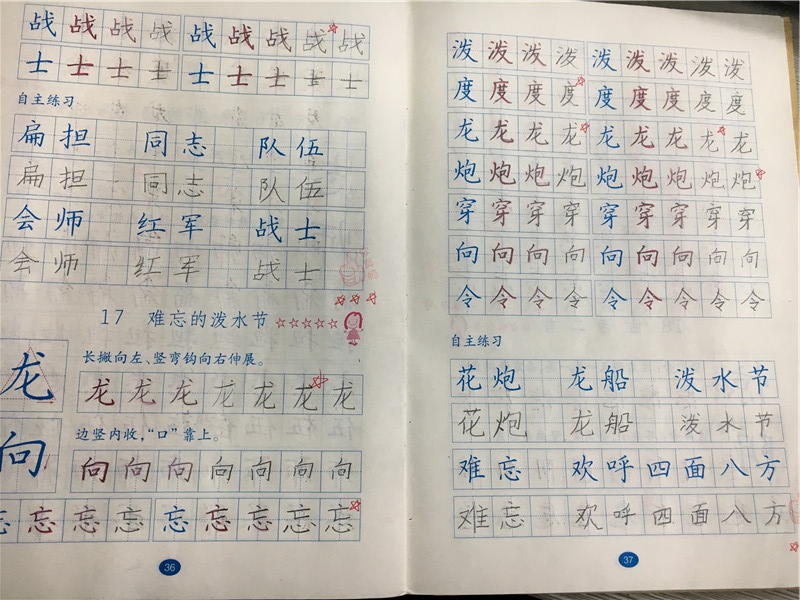 战战战战战战战战战
士士士士士士士士士
自主练习
扁担 同志 队伍
扁担 同志 队伍
会师 红军 战士
会师 红军 战士
17 难忘的泼水节☆☆☆☆☆
龙
长撇向左、竖弯钩向右伸展。
龙龙龙龙龙龙龙
向
边竖内收，“口”靠上。
向向向向向向向
忘忘忘忘忘忘忘忘忘
36
泼泼泼泼泼泼泼泼泼
度度度度度度度度度
龙龙龙龙龙龙龙龙龙
炮炮炮炮炮炮炮炮炮
穿穿穿穿穿穿穿穿穿
向向向向向向向向向
令令令令令令令令令
自主练习
花炮 龙船 泼水节
花炮 龙船 泼水节
难忘 欢呼 四面八方
难忘 欢呼 四面八方
37